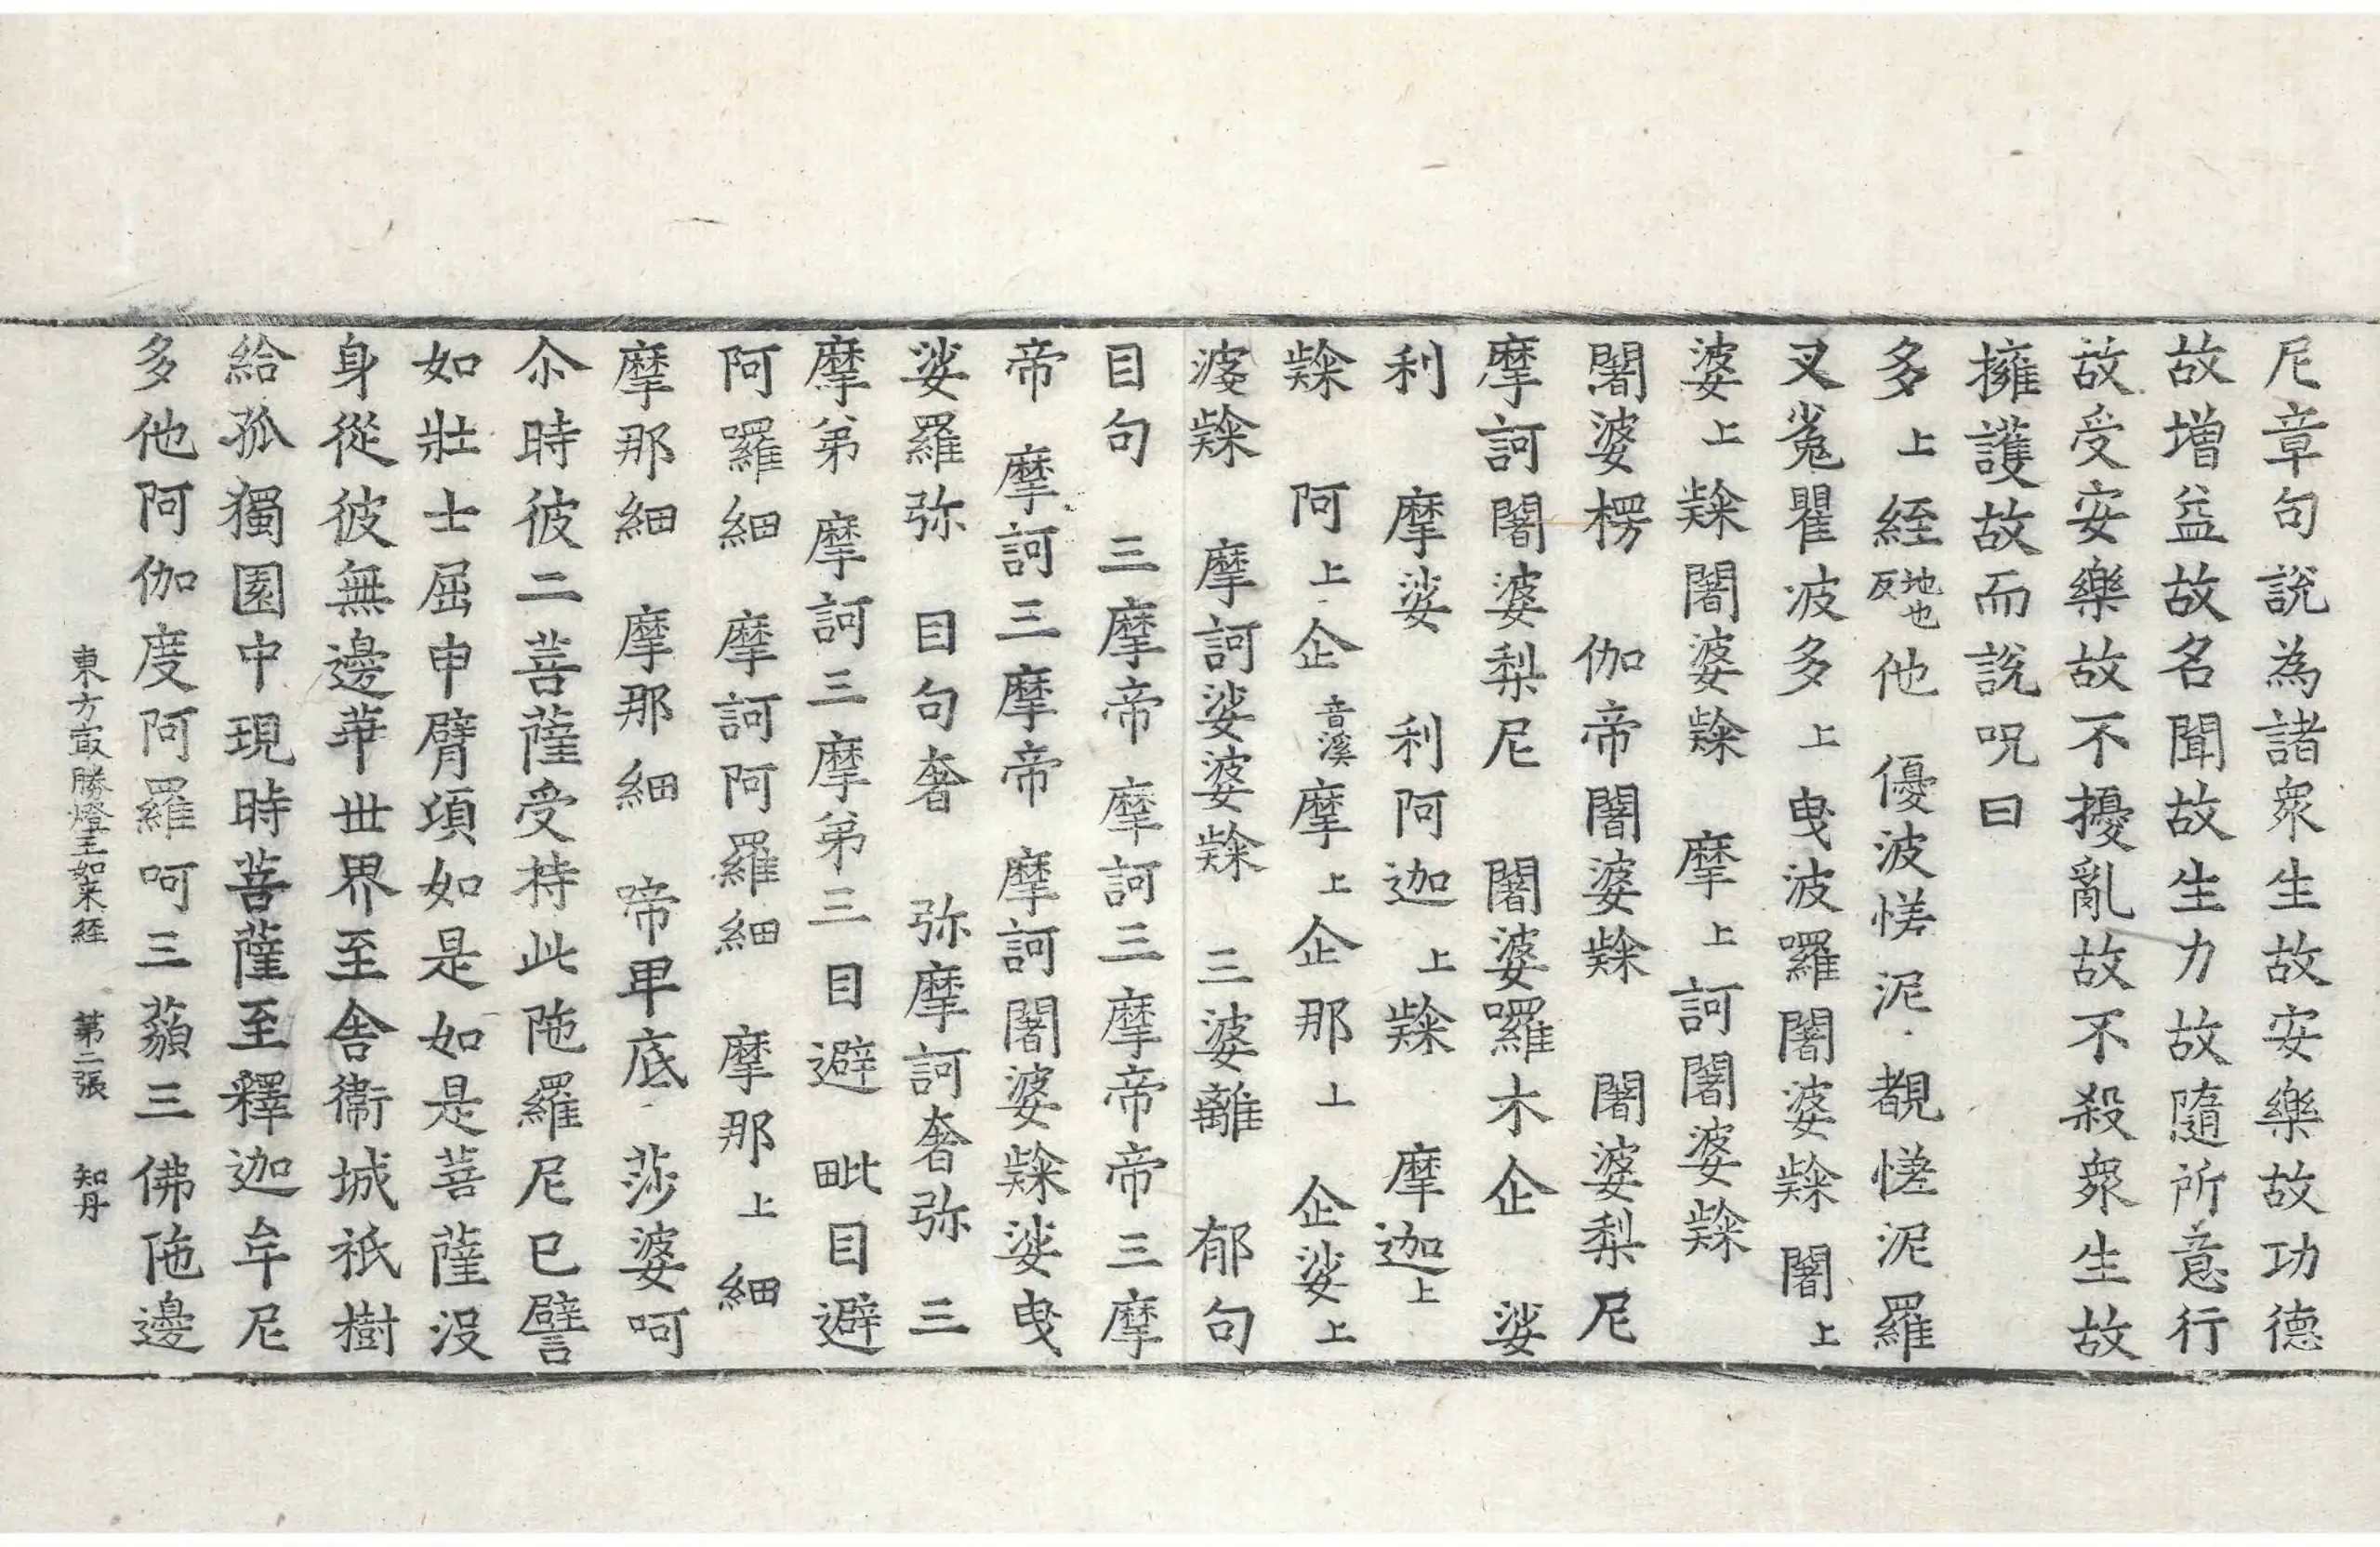 尼章句說為諸衆生故安樂故功德
故增益故名聞故生力故隨所意行
故受安樂故不擾亂故不殺衆生故
擁護故而說呪曰
多上絰地也反他 優波㤞泥 覩㤞泥羅
叉㝹瞿波多上曳波囉闍婆𣫍闍上
婆上𣫍闍婆𣫍 摩上訶闍婆𣫍
闍婆楞 伽帝闍婆𣫍 闍婆梨尼
摩訶闍婆梨尼 闍婆囉木企 娑
利 摩娑 利阿迦上𣫍 摩迦上
𣫍 阿上企音溪摩上企那上 企娑上
婆𣫍 摩訶娑婆𣫍 三婆離 郁句
目句 三摩帝 摩訶三摩帝帝三摩
帝 摩訶三摩帝 摩訶闍婆𣫍娑曳
娑羅弥 目句奢 弥摩訶奢弥 三
摩弟 摩訶三摩弟三目避 毗目避
阿囉細 摩訶阿羅細 摩那上細
摩那細 摩那細 啼卑底 莎婆呵
尒時彼二菩薩受持此陁羅尼已譬
如壯士屈申臂項如是如是菩薩沒
身從彼無邊華世界至舍衛城祇樹
給孤獨園中現時菩薩至釋迦牟尼
多他阿伽度阿羅呵三藐三佛陁邊
東方㝡勝燈王如来經 第二張 知丹